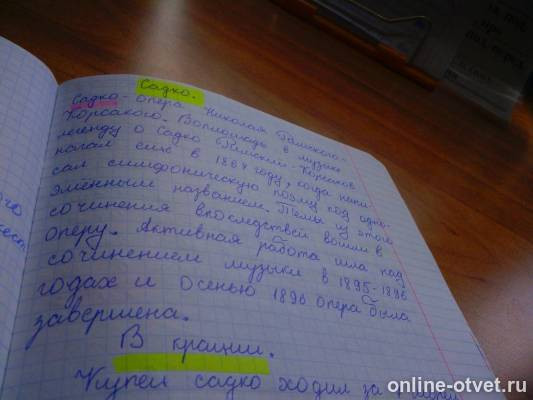 Садко.
Садко - опера Николая Римского-
Корсакого. Воплощать в музыке
легенду о Садко Римский-Корсаков
начал ещё в 1867 году, когда напи-
сал симфоническую поэму под одно-
имённым названием. Темы из этого
сочинения впоследствей вошли в
оперу. Активная работа шла над
сочинением музыки в 1895-1896
годах и осенью 1896 опера была
завершена.
В крации.
Купец садко ходил за
online-otvet.ru